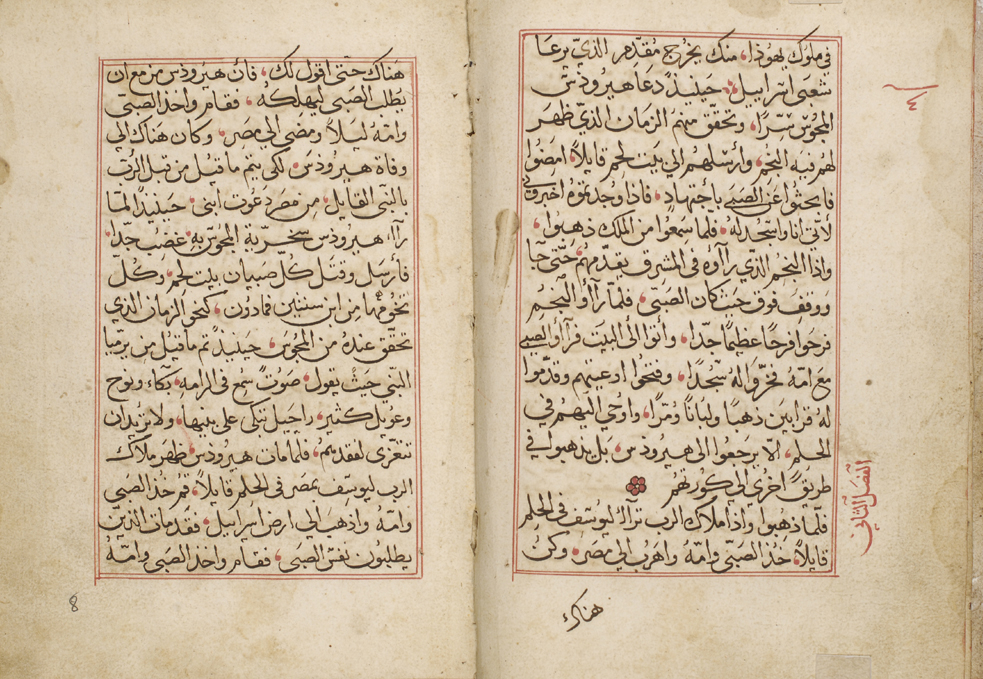 في ملوك يهوذا، منك يخرج مقدم الذي يرعا
شعبي اسراييل، حينيذ دعا هيرودس
المجوس سرًا، وتحقق منهم الزمان الذي ظهر
لهم فيه النجم، وارسلهم الي بيت لحم قايلًا، امضوا
فابحثوا عن الصبي باجتهاد، فاذا وجدتموه اخبروني
لاتي انا واسجد له، فلما سمعوا من الملك ذهبوا،
واذا النجم الذي رآوه في المشرق يقدمهم، حتى جا
ووقف فوق حيث كان الصبي، فلما رآوا النجم
فرحوا فرحًا عظيمًا جدًا، وأتوا الي البيت فرآوا الصبي
مع امه فخروا له سجدًا، وفتحوا اوعيتهم وقدموا
له قرابين ذهبًا ولبانًا ومرًا، واوحي اليهم في
الحلم، الا يرجعوا الى هيرودس، بل يذهبوا في
طريق اخري الي كورتهم
فلما ذهبوا واذا ملاك الرب تراآ ليوسف في الحلم
قايلًا، خذ الصبي وامه واهرب الي مصر، وكن
هناك
٤
الفصل الثاني
هناك حتى اقول لك، فان هيرودس مزمع ان
يطلب الصبي ليهلكه، فقام واخذ الصبي
وامه ليلًا ومضي الي مصر، وكان هناك الي
وفاة هيرودس، لكي يتم ما قيل من قبل الرب
بالنبي القايل، من مصر دعوت ابني، حينيذ لما
رآا هيرودس سخرية المجوس به، غضب جدًا،
فأرسل وقتل كل صبيان بيت لحم، وكل
تخومها من ابن سنتين فما دون، كنحو الزمان الذي
تحقق عنده من المجوس، حينيذ تم ما قيل من يرميا
النبي حيث يقول، صوت سمع في الرامه، بكاء ونوح
وعويل كثير، راحيل تبكي على بنيها، ولا تريد ان
تتعزى لفقدهم، فلما مات هيرودس، ظهر ملاك
الرب ليوسف بمصر في الحلم قايلًا، قم خذ الصبي
وامه واذهب الي ارض اسراييل، فقد مات الذين
يطلبون نفس الصبي، فقام واخذ الصبي وامه
8